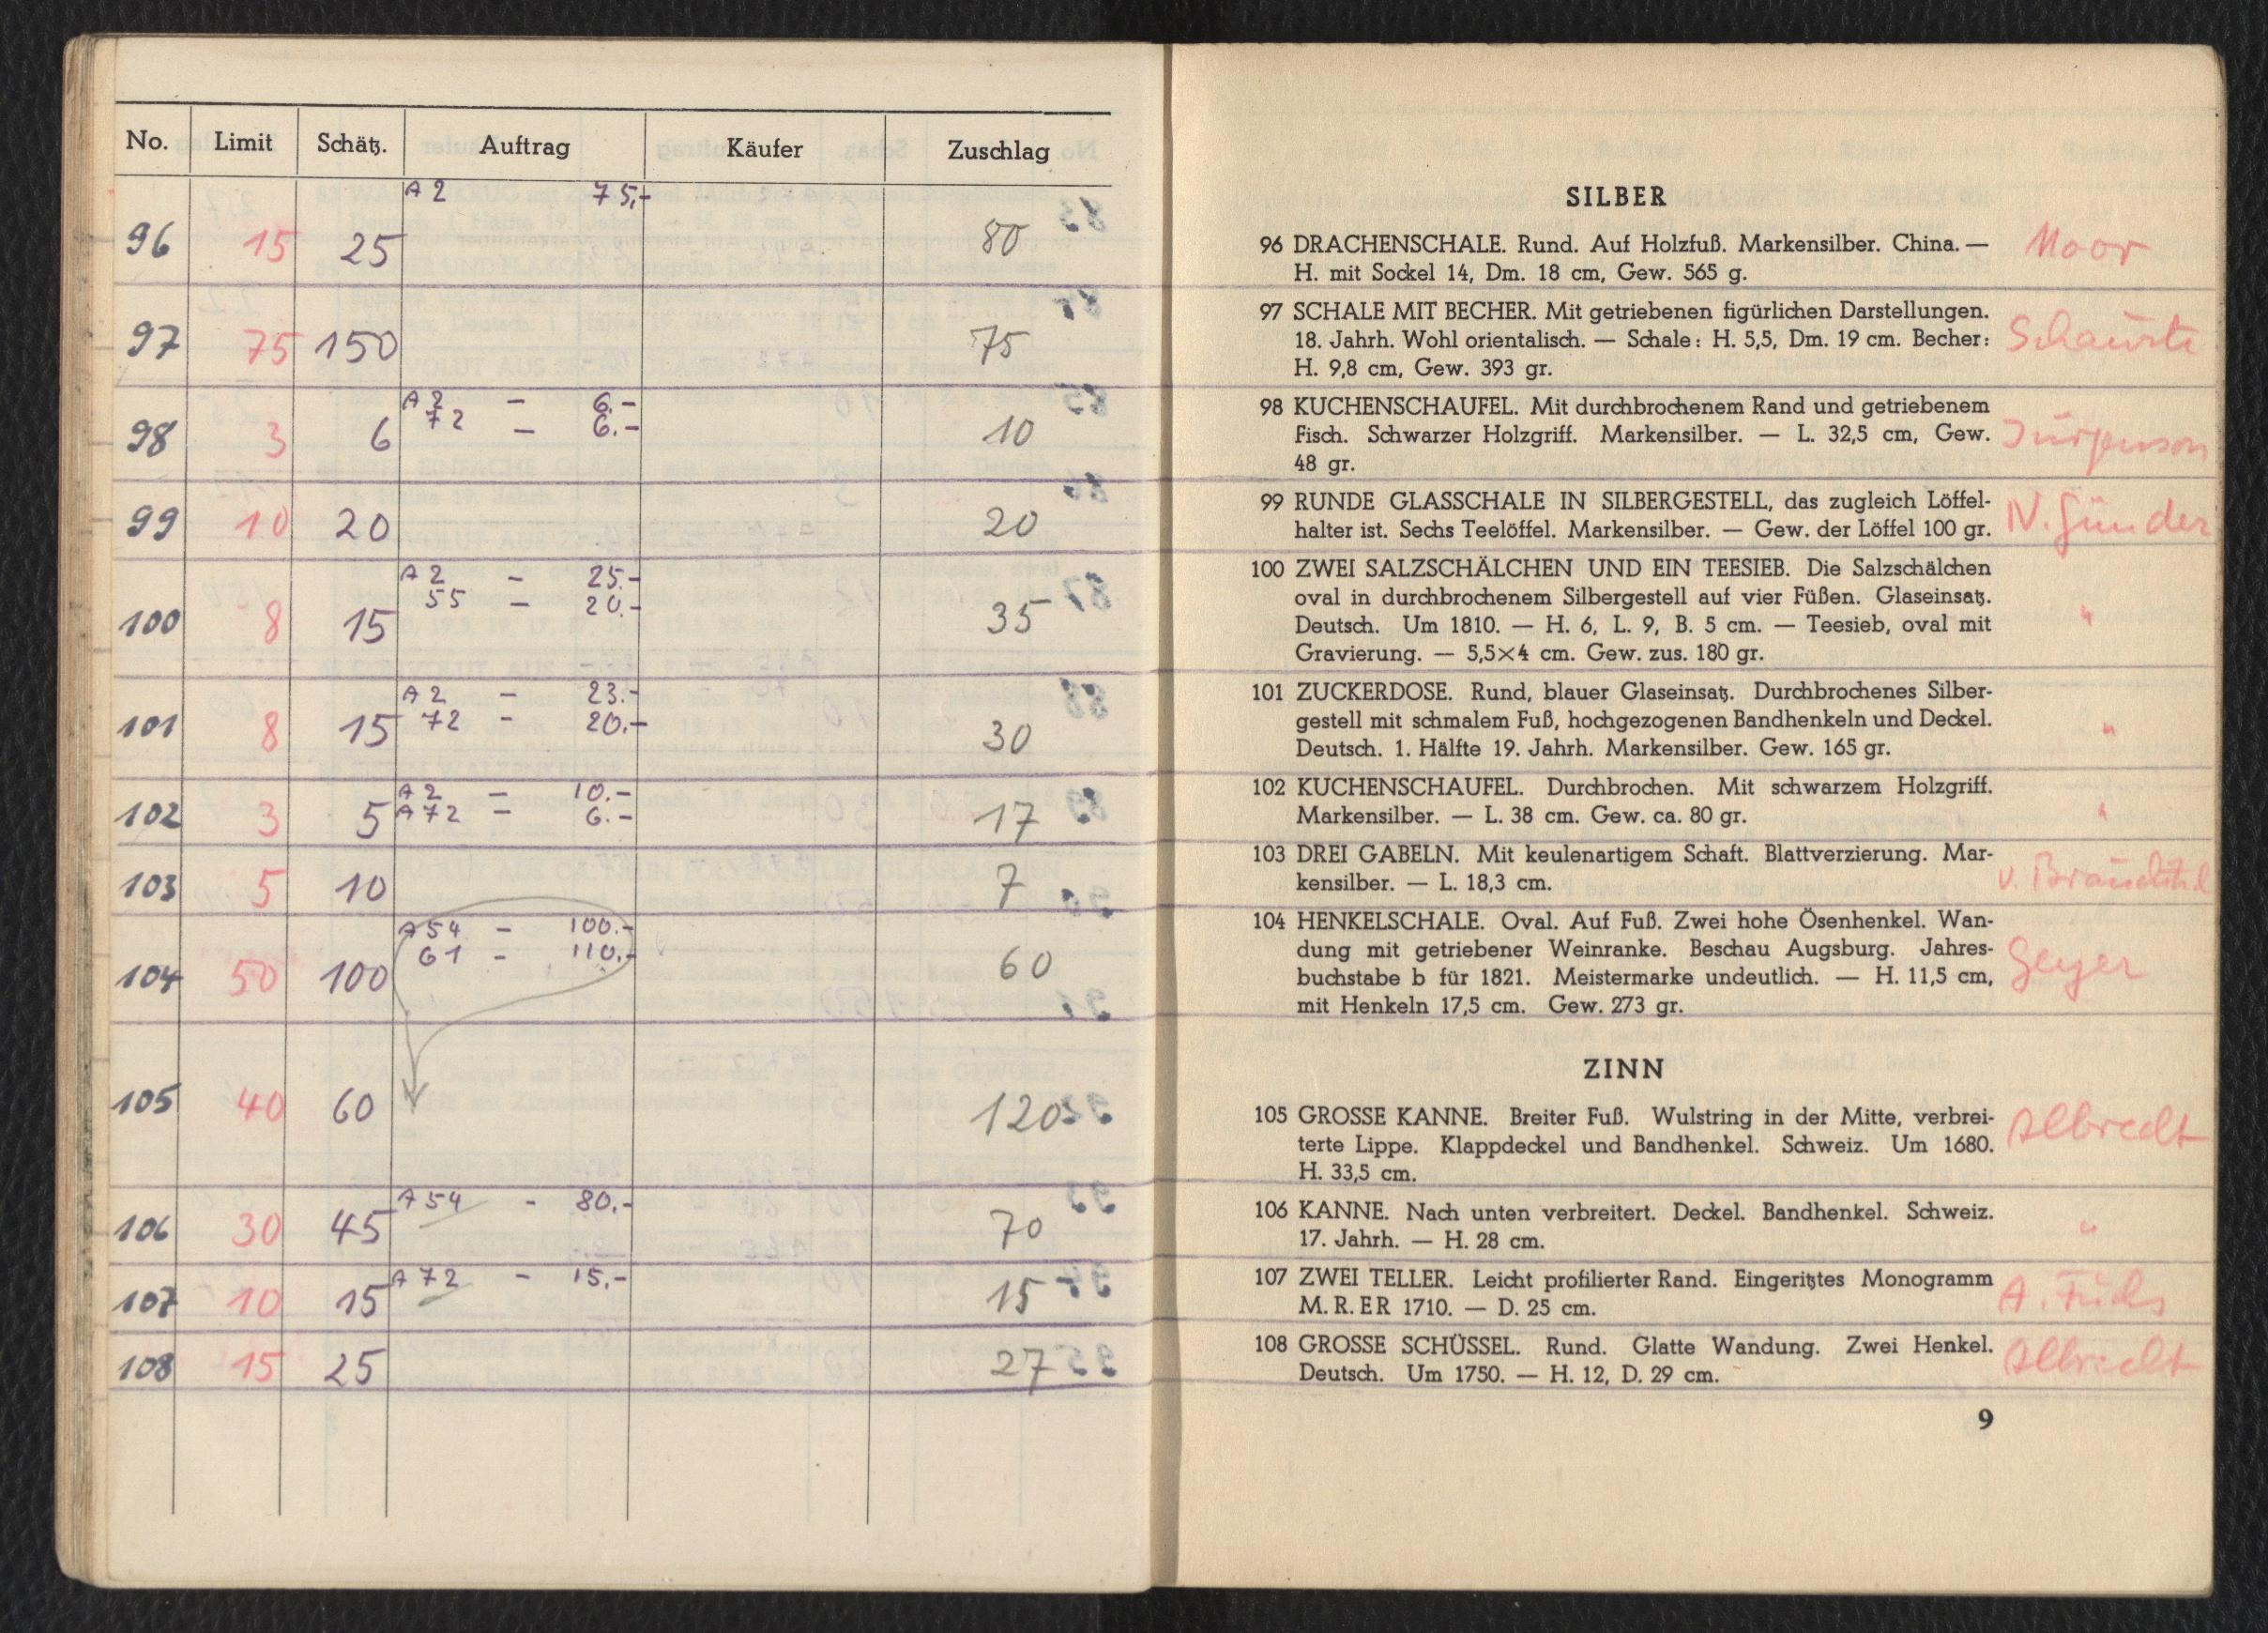 No. Limit Schätz. Auftrag Käufer Zuschlag
A 2 75,-
96 15 25 80
97 75 150 75
A 2 - 6.-
72 - 6.-
98 3 6 10
99 10 20 20
A 2 - 25.-
55 - 20.-
100 8 15 35
A 2 - 23.-
72 - 20.-
101 8 15 30
A 2 - 10.-
A 72 - 6.-
102 3 5 17
103 5 10 7
A 54 - 100.-
61 - 110.-
104 50 100 60
105 40 60 120
A 54 - 80.-
106 30 45 70
A 72 - 15,-
107 10 15 15
108 15 25 27
SILBER
96 DRACHENSCHALE. Rund. Auf Holzfuß. Markensilber. China. — Moor
H. mit Sockel 14, Dm. 18 cm, Gew. 565 g.
97 SCHALE MIT BECHER. Mit getriebenen figürlichen Darstellungen.
18. Jahrh. Wohl orientalisch. — Schale: H. 5,5, Dm. 19 cm. Becher:
H. 9,8 cm, Gew. 393 gr.
98 KUCHENSCHAUFEL. Mit durchbrochenem Rand und getriebenem
Fisch. Schwarzer Holzgriff. Markensilber. — L. 32,5 cm, Gew.
48 gr.
99 RUNDE GLASSCHALE IN SILBERGESTELL, das zugleich Löffel-
halter ist. Sechs Teelöffel. Markensilber. — Gew. der Löffel 100 gr.
100 ZWEI SALZSCHÄLCHEN UND EIN TEESIEB. Die Salzschälchen
oval in durchbrochenem Silbergestell auf vier Füßen. Glaseinsatz. "
Deutsch. Um 1810. — H. 6, L. 9, B. 5 cm. — Teesieb, oval mit
Gravierung. — 5,5×4 cm. Gew. zus. 180 gr.
101 ZUCKERDOSE. Rund, blauer Glaseinsatz. Durchbrochenes Silber-
gestell mit schmalem Fuß, hochgezogenen Bandhenkeln und Deckel. "
Deutsch. 1. Hälfte 19. Jahrh. Markensilber. Gew. 165 gr.
102 KUCHENSCHAUFEL. Durchbrochen. Mit schwarzem Holzgriff.
Markensilber. — L. 38 cm. Gew. ca. 80 gr. "
103 DREI GABELN. Mit keulenartigem Schaft. Blattverzierung. Mar-
kensilber. — L. 18,3 cm.
104 HENKELSCHALE. Oval. Auf Fuß. Zwei hohe Ösenhenkel. Wan-
dung mit getriebener Weinranke. Beschau Augsburg. Jahres- Geyer
buchstabe b für 1821. Meistermarke undeutlich. — H. 11,5 cm,
mit Henkeln 17,5 cm. Gew. 273 gr.
ZINN
105 GROSSE KANNE. Breiter Fuß. Wulstring in der Mitte, verbrei- Albrecht
terte Lippe. Klappdeckel und Bandhenkel. Schweiz. Um 1680.
H. 33,5 cm.
106 KANNE. Nach unten verbreitert. Deckel. Bandhenkel. Schweiz. "
17. Jahrh. — H. 28 cm.
107 ZWEI TELLER. Leicht profilierter Rand. Eingeritztes Monogramm A. Fuchs
M. R. ER 1710. — D. 25 cm.
108 GROSSE SCHÜSSEL. Rund. Glatte Wandung. Zwei Henkel. Albrecht
Deutsch. Um 1750. — H. 12, D. 29 cm.
9